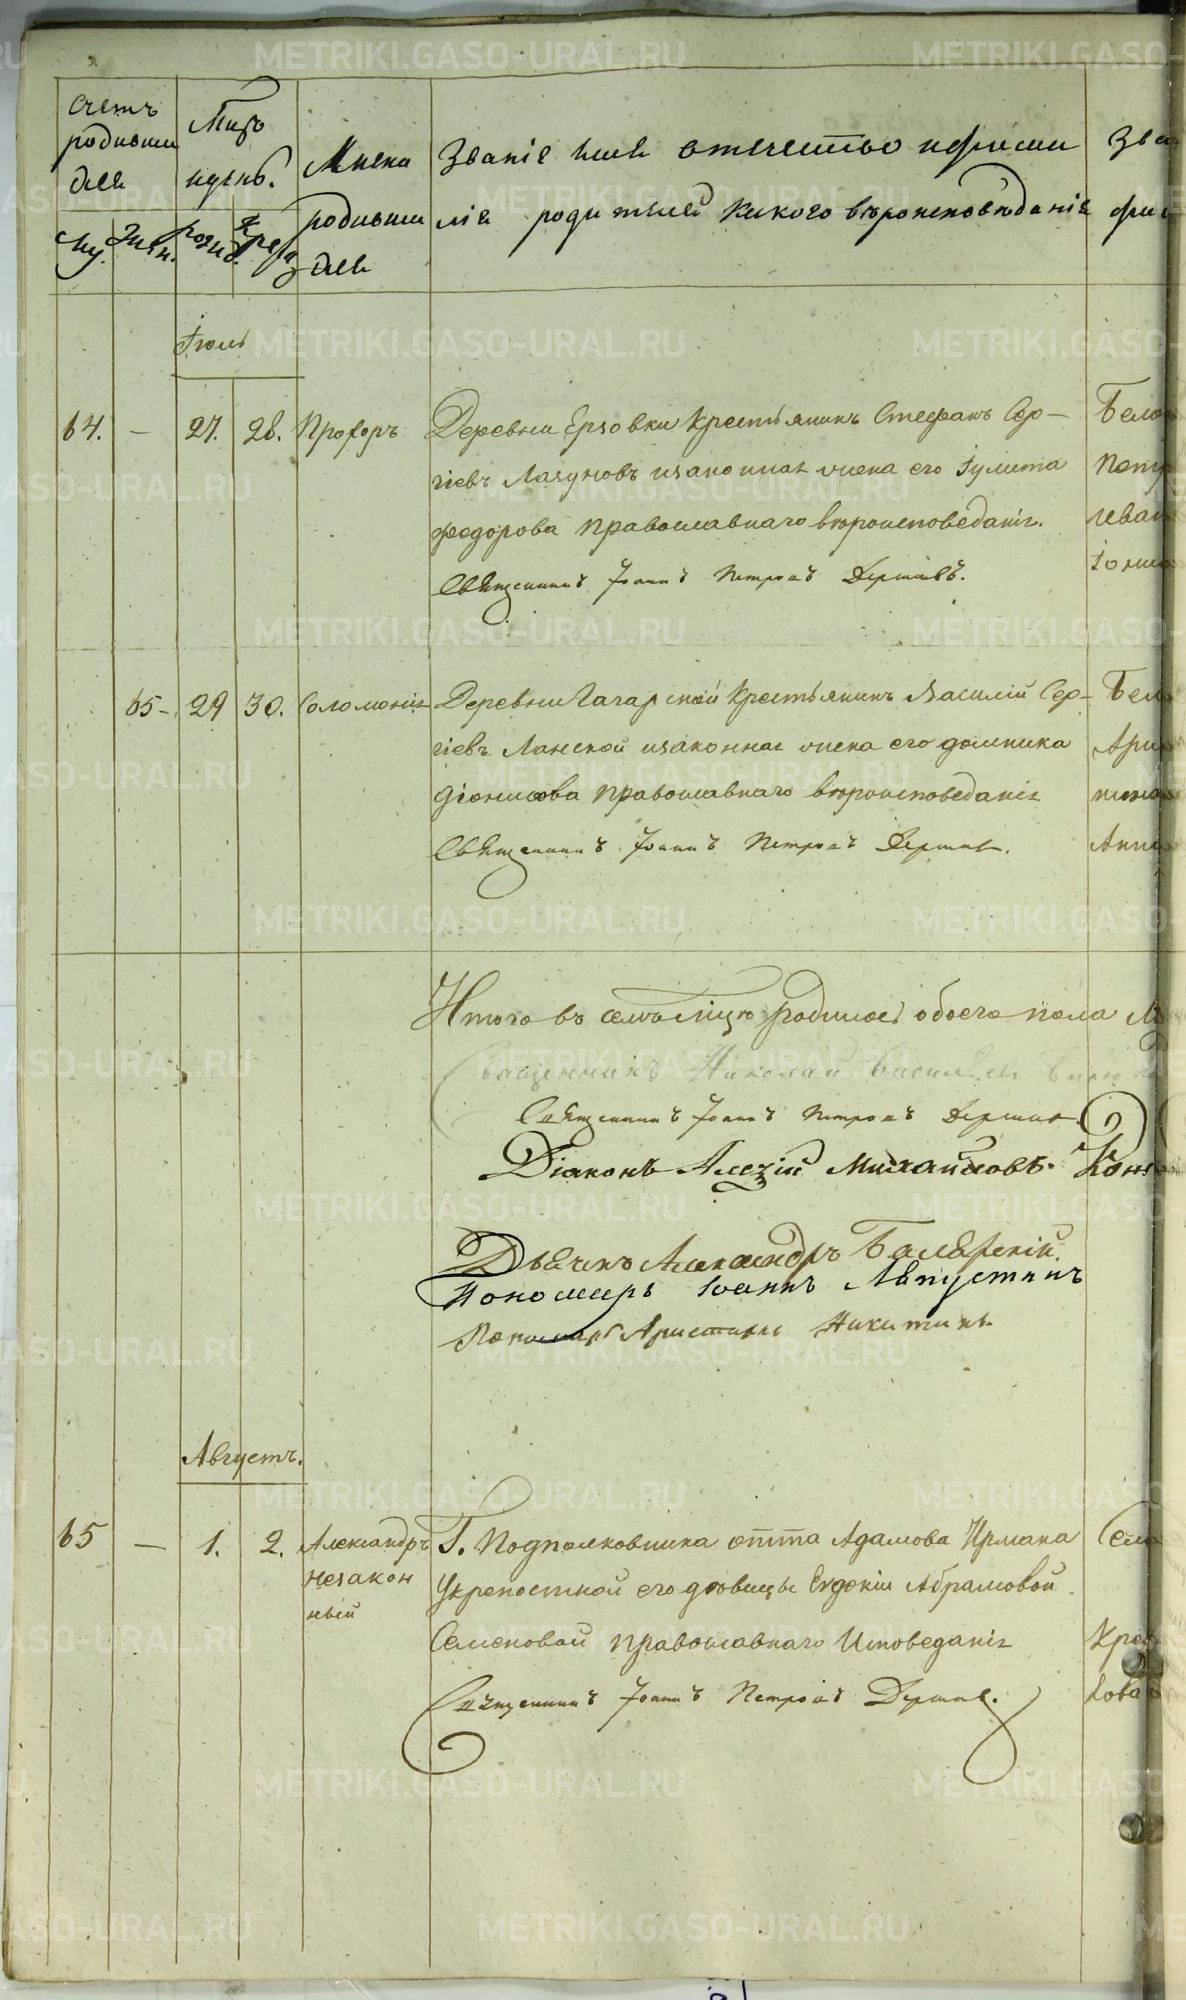 Счетъ родивши
дея
Муж. Жен.
Мцъ
и день.
рожд. Крещ.
Имена
родивши
дея
Званіе имя отчество и фами
лія родителей и какого вѣроисповѣданія
Зва
фам
Іюль
64. — 27. 28. Прохоръ
Деревни Ерзовки крестьянинъ Стефанъ Сер-
гіевъ Лагуновъ и законная жена его Іулита
Федорова православнаго вѣроисповеданія.
Священникъ Іоаннъ Петровъ
Бело
Пет
лева
65- 29 30. Соломонія
Деревни Гагарской крестьянинъ Василій Сер-
гіевъ Ланской и законная жена его Домника
Діонисова православнаго вѣроисповеданія
Священникъ Іоаннъ Петровъ
Бел
Ари
Анн
Итого въ семъ мцѣ родилось обоего пола
Священникъ Николай Васильевъ
Священникъ Іоаннъ Петровъ
Діаконъ Алексій Михайловъ.
Дьячекъ Александръ Балярскій.
Пономарь Іоаннъ Августинъ
Пономарь Аристархъ Никитинъ.
Августъ.
65 — 1. 2. Александръ
незакон
ный
Г. Подполковника Отта Адамова Ирмана
у крепостной его дѣвицы Евдокіи Абрамовой
Семеновой православнаго исповеданія
Священникъ Іоаннъ Петровъ
Села
Крес
кова
METRIKI.GASO-URAL.RU